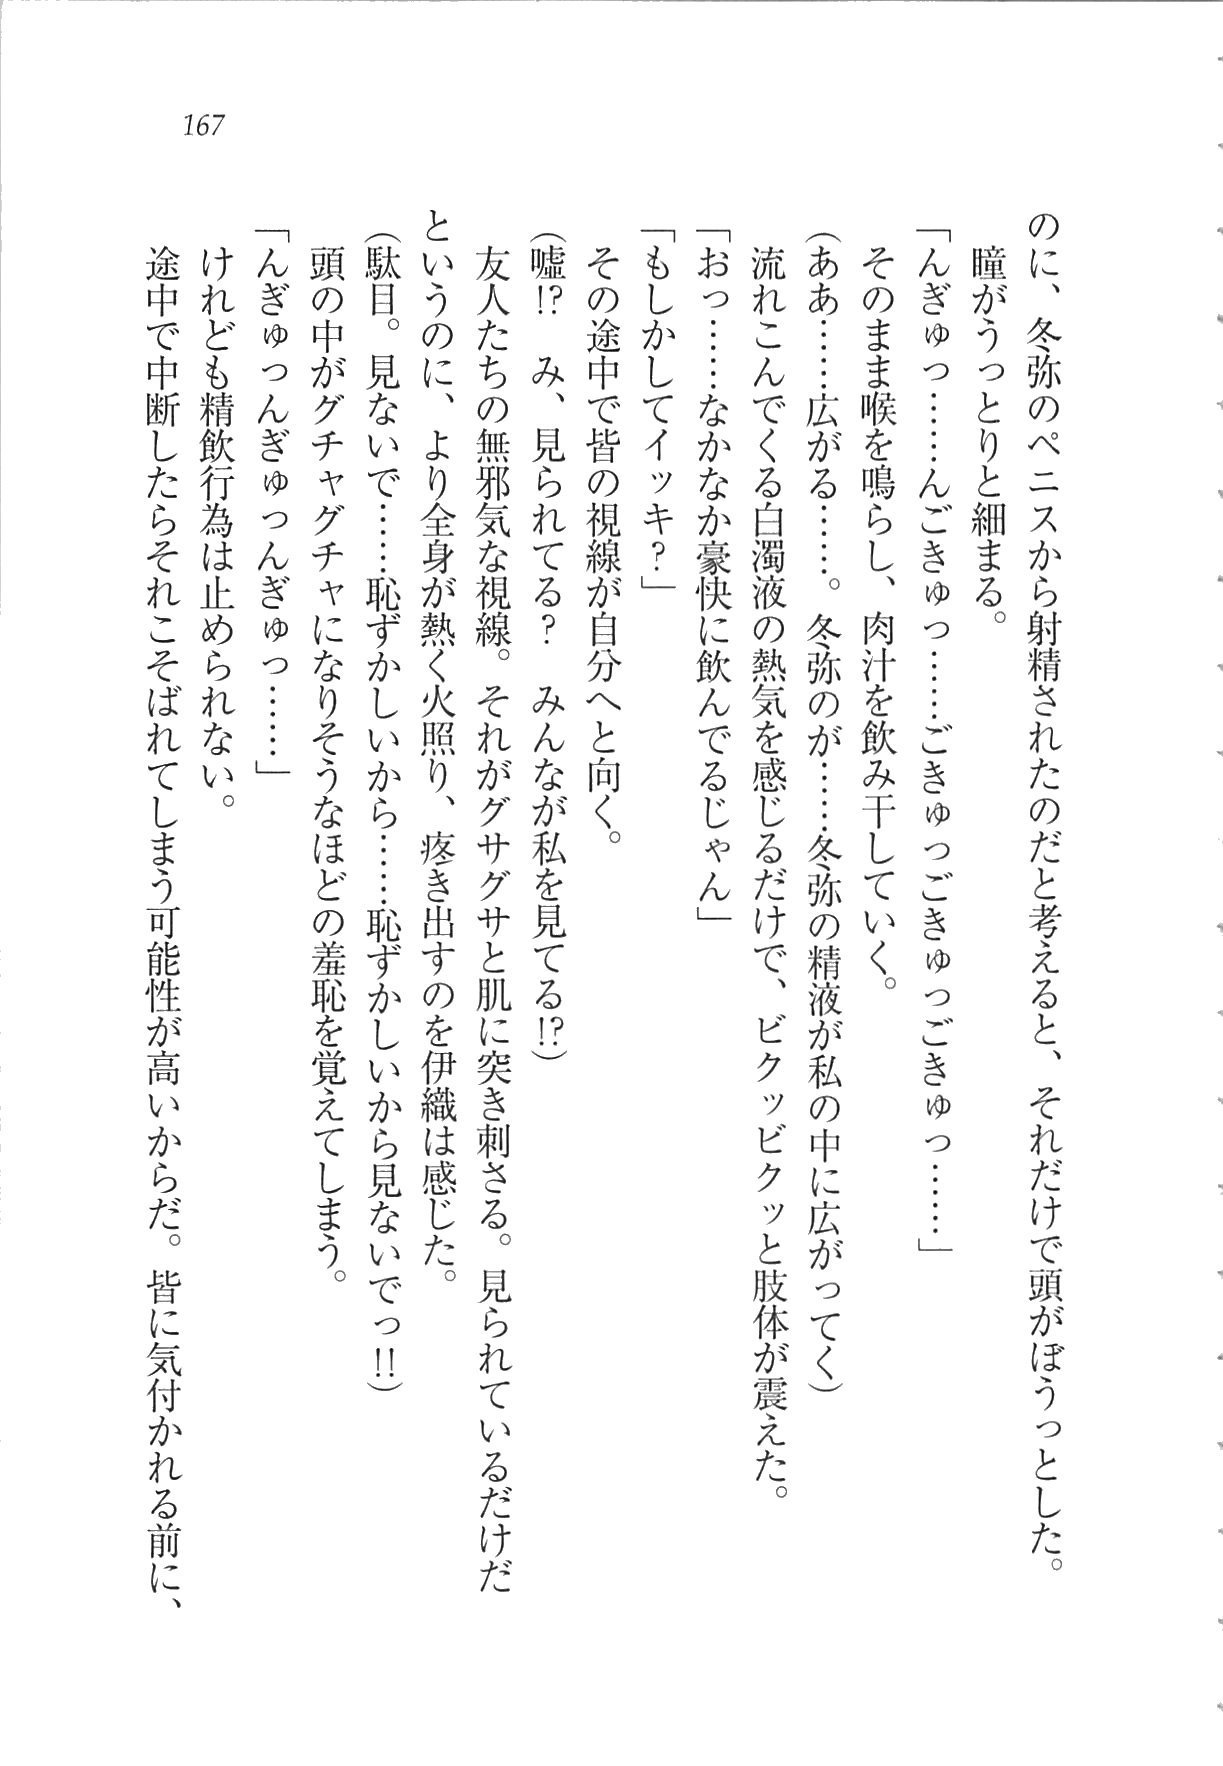 167
のに、冬弥のペニスから射精されたのだと考えると、それだけで頭がぼうっとした。
瞳がうっとりと細まる。
「んぎゅっ………んごきゅっ……ごきゅっごきゅっごきゅっ……」
そのまま喉を鳴らし、肉汁を飲み干していく。
(ああ……広がる……。冬弥のが……冬弥の精液が私の中に広がってく)
流れこんでくる白濁液の熱気を感じるだけで、ビクッビクッと肢体が震えた。
「おっ……なかなか豪快に飲んでるじゃん」
「もしかしてイッキ?」
その途中で皆の視線が自分へと向く。
(嘘!? み、見られてる? みんなが私を見てる!?)
友人たちの無邪気な視線。それがグサグサと肌に突き刺さる。見られているだけだ
というのに、より全身が熱く火照り、疼き出すのを伊織は感じた。
(駄目。見ないで……恥ずかしいから……恥ずかしいから見ないでっ!!)
頭の中がグチャグチャになりそうなほどの羞恥を覚えてしまう。
「んぎゅっんぎゅっんぎゅっ……」
けれども精飲行為は止められない。
途中で中断したらそれこそばれてしまう可能性が高いからだ。皆に気付かれる前に、